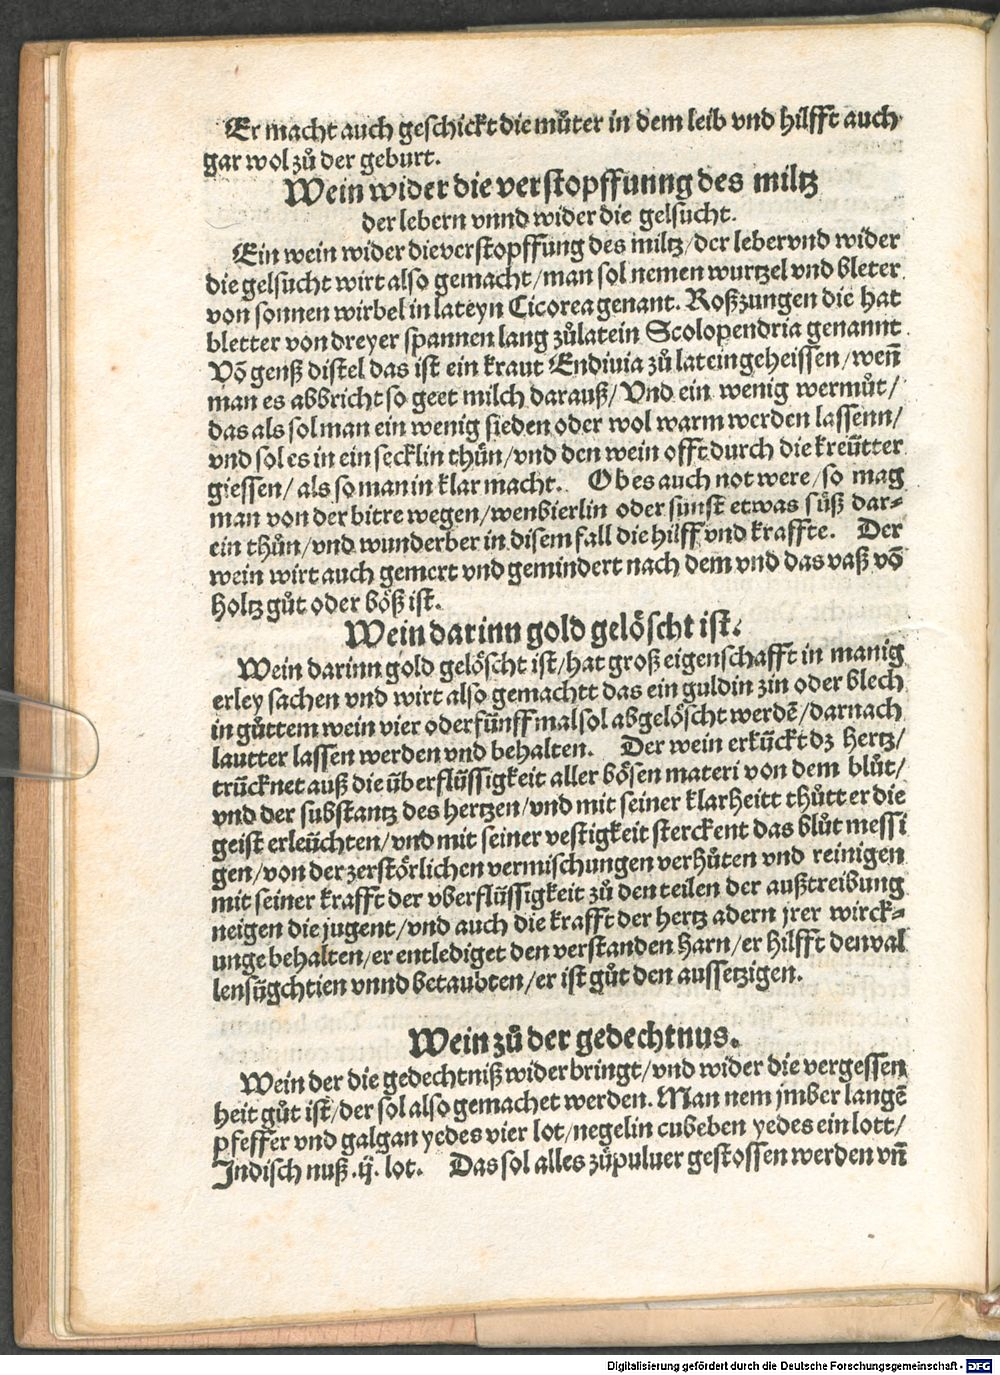 Er macht auch geschickt die můter in dem leib vnd hilfft auch
gar wol zů der geburt.
Wein wider die verstopffunng des miltz
der lebern vnnd wider die gelsucht.
Ein wein wider die verstopffung des miltz/der leber vnd wider
die gelsucht wirt also gemacht/man sol nemen wurtzel vnd bleter
von sonnen wirbel in lateyn Cicorea genant. Roßzungen die hat
bletter von dreyer spannen lang zůlatein Scolopendria genannt
Võ genß distel das ist ein kraut Endiuia zů latein geheissen/weñ
man es abbricht so geet milch darauß/Vnd ein wenig wermůt/
das als sol man ein wenig sieden oder wol warm werden lassenn/
vnd sol es in ein secklin thůn/vnd den wein offt durch die kreütter
giessen/als so man in klar macht. Ob es auch not were/so mag
man von der bitre wegen/wenbierlin oder sunst etwas sůß dar⸗
ein thůn/vnd wunderber in disem fall die hilff vnd kraffte. Der
wein wirt auch gemert vnd gemindert nach dem vnd das vaß võ
holtz gůt oder böß ist.
Wein darinn gold gelöscht ist.
Wein darinn gold gelöscht ist/hat groß eigenschafft in manig
erley sachen vnd wirt also gemachtt das ein guldin zin oder blech
in gůttem wein vier oder fünff mal sol abgelöscht werdẽ/darnach
lautter lassen werden vnd behalten. Der wein erkückt dz hertz/
trücknet auß die überflüssigkeit aller bösen materi von dem blůt/
vnd der substantz des hertzen/vnd mit seiner klarheitt thůtt er die
geist erleüchten/vnd mit seiner vestigkeit sterckent das blůt messi
gen/von der zerstörlichen vermischungen verhůten vnd reinigen
mit seiner krafft der vberflüssigkeit zů den teilen der außtreibung
neigen die jugent/vnd auch die krafft der hertz adern jrer wirck⸗
unge behalten/er entlediget den verstanden harn/er hilfft den val
lensügchtien vnnd betaubten/er ist gůt den aussetzigen.
Wein zů der gedechtnus.
Wein der die gedechtniß widerbringt/vnd wider die vergessen
heit gůt ist/der sol also gemachet werden. Man nem jmber langẽ
pfeffer vnd galgan yedes vier lot/negelin cubeben yedes ein lott/
Indisch nuß .ij. lot. Das sol alles zůpuluer gestossen werden vñ
Digitalisierung gefördert durch die Deutsche Forschungsgemeinschaft - DFG